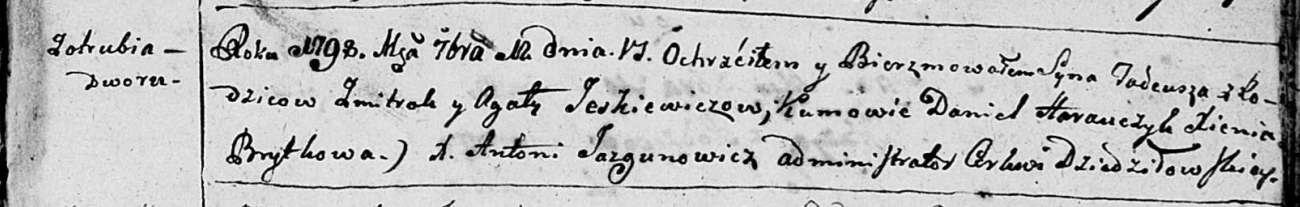 Zotrubia –
Dworu –
Roku 1798. Mga 7bra 12 dnia. VS. Ochrzciłem y Bierzmowałem Syna Tadeusza z Ro-
dzicow Zmitrok y Agaty Jeskiewiczow, Kumowie Daniel Harauczyk Xienia
Brytkowa.) X. Antoni Jazgunowicz administrator Cerkwi Dziedziłowskiey.